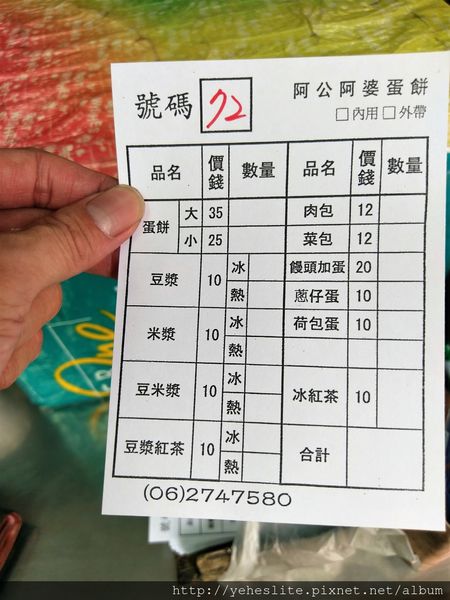 號碼 72
阿公阿婆蛋餅
□內用□外帶
品名 價錢 數量 品名 價錢 數量
蛋餅 大 35 肉包 12
小 25 菜包 12
豆漿 10 冰 饅頭加蛋 20
熱 蔥仔蛋 10
米漿 10 冰 荷包蛋 10
熱
豆米漿 10 冰 冰紅茶 10
熱
豆漿紅茶 10 冰 合計
熱
(06)2747580
http://yeheslite.pixnet.net/album